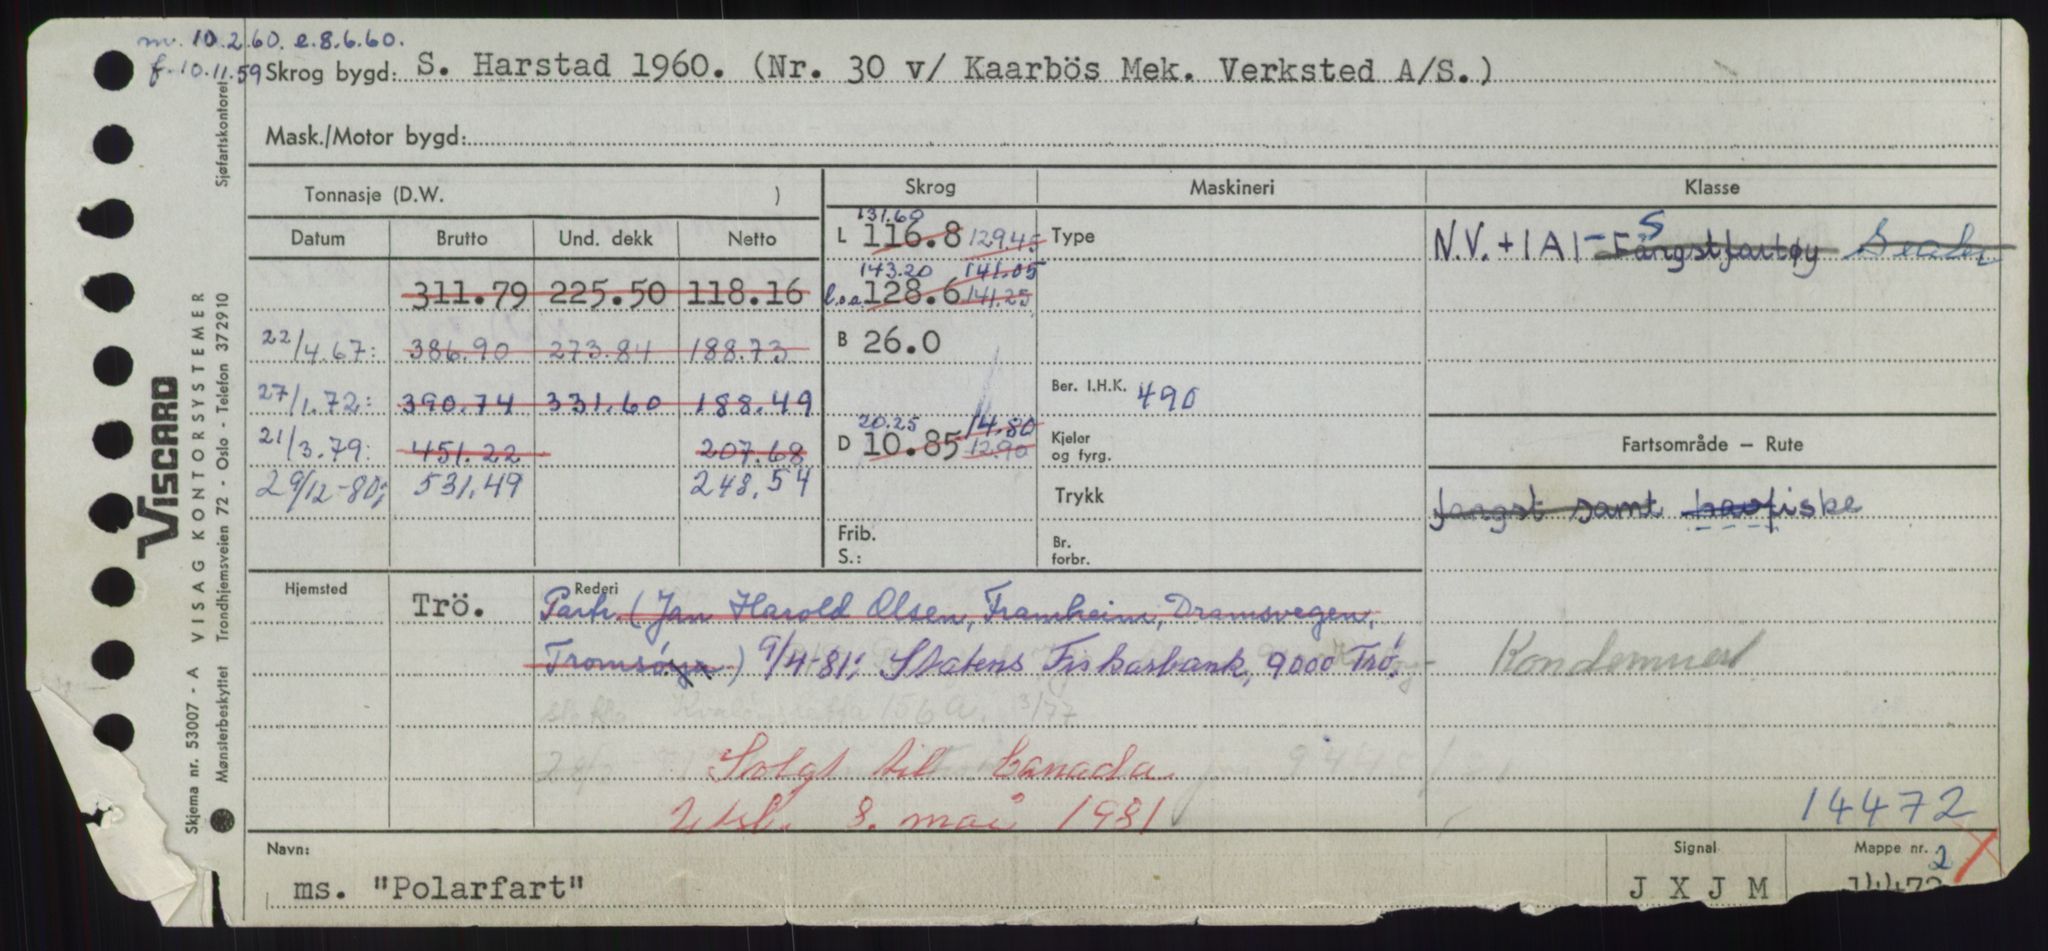 m. 10.2.60. e.8.6.60.
f. 10.11.59 Skrog bygd: S. Harstad 1960. (Nr. 30 v/ Kaarbös Mek. Verksted A/S.)
Mask./Motor bygd:
Tonnasje (D.W. )
Skrog Maskineri Klasse
Datum Brutto Und. dekk Netto
L 131.60 116.8 129.45 Type
N.V. + 1A1 - S Fangstfartøy Sealer
311.79 225.50 118.16
143.20 141.05
l.o.a. 128.6 141.25
22/4.67: 386.90 273.84 188.73
B 26.0
27/1.72: 390.74 331.60 188.49
Ber. I.H.K. 490
21/3.79: 451.22 207.68
20.25 14.80
D 10.85 12.90
Kjeler og fyrg.
Fartsområde – Rute
29/12-80; 531,49 248,54
Trykk
fangst samt havfiske
Frib.
S.:
Br. forbr.
Hjemsted Trö.
Rederi
Partr. (Jan Harold Olsen, Framheim, Dramsvegen,
Tromsöya) 9/4-81: Statens Fiskarbank, 9000 Trö.
Kondemnert
3/77
Solgt till Canada
Utsl. 8. mai 1981
14472
Navn: ms. "Polarfart"
Signal J X J M
Mappe nr. 14472
2
VISCARD
VISAG KONTORSYSTEMER
Skjema nr. 53007 - A
Mønsterbeskyttet Trondhjemsveien 72 - Oslo - Telefon 372910
Sjøfartskontoret